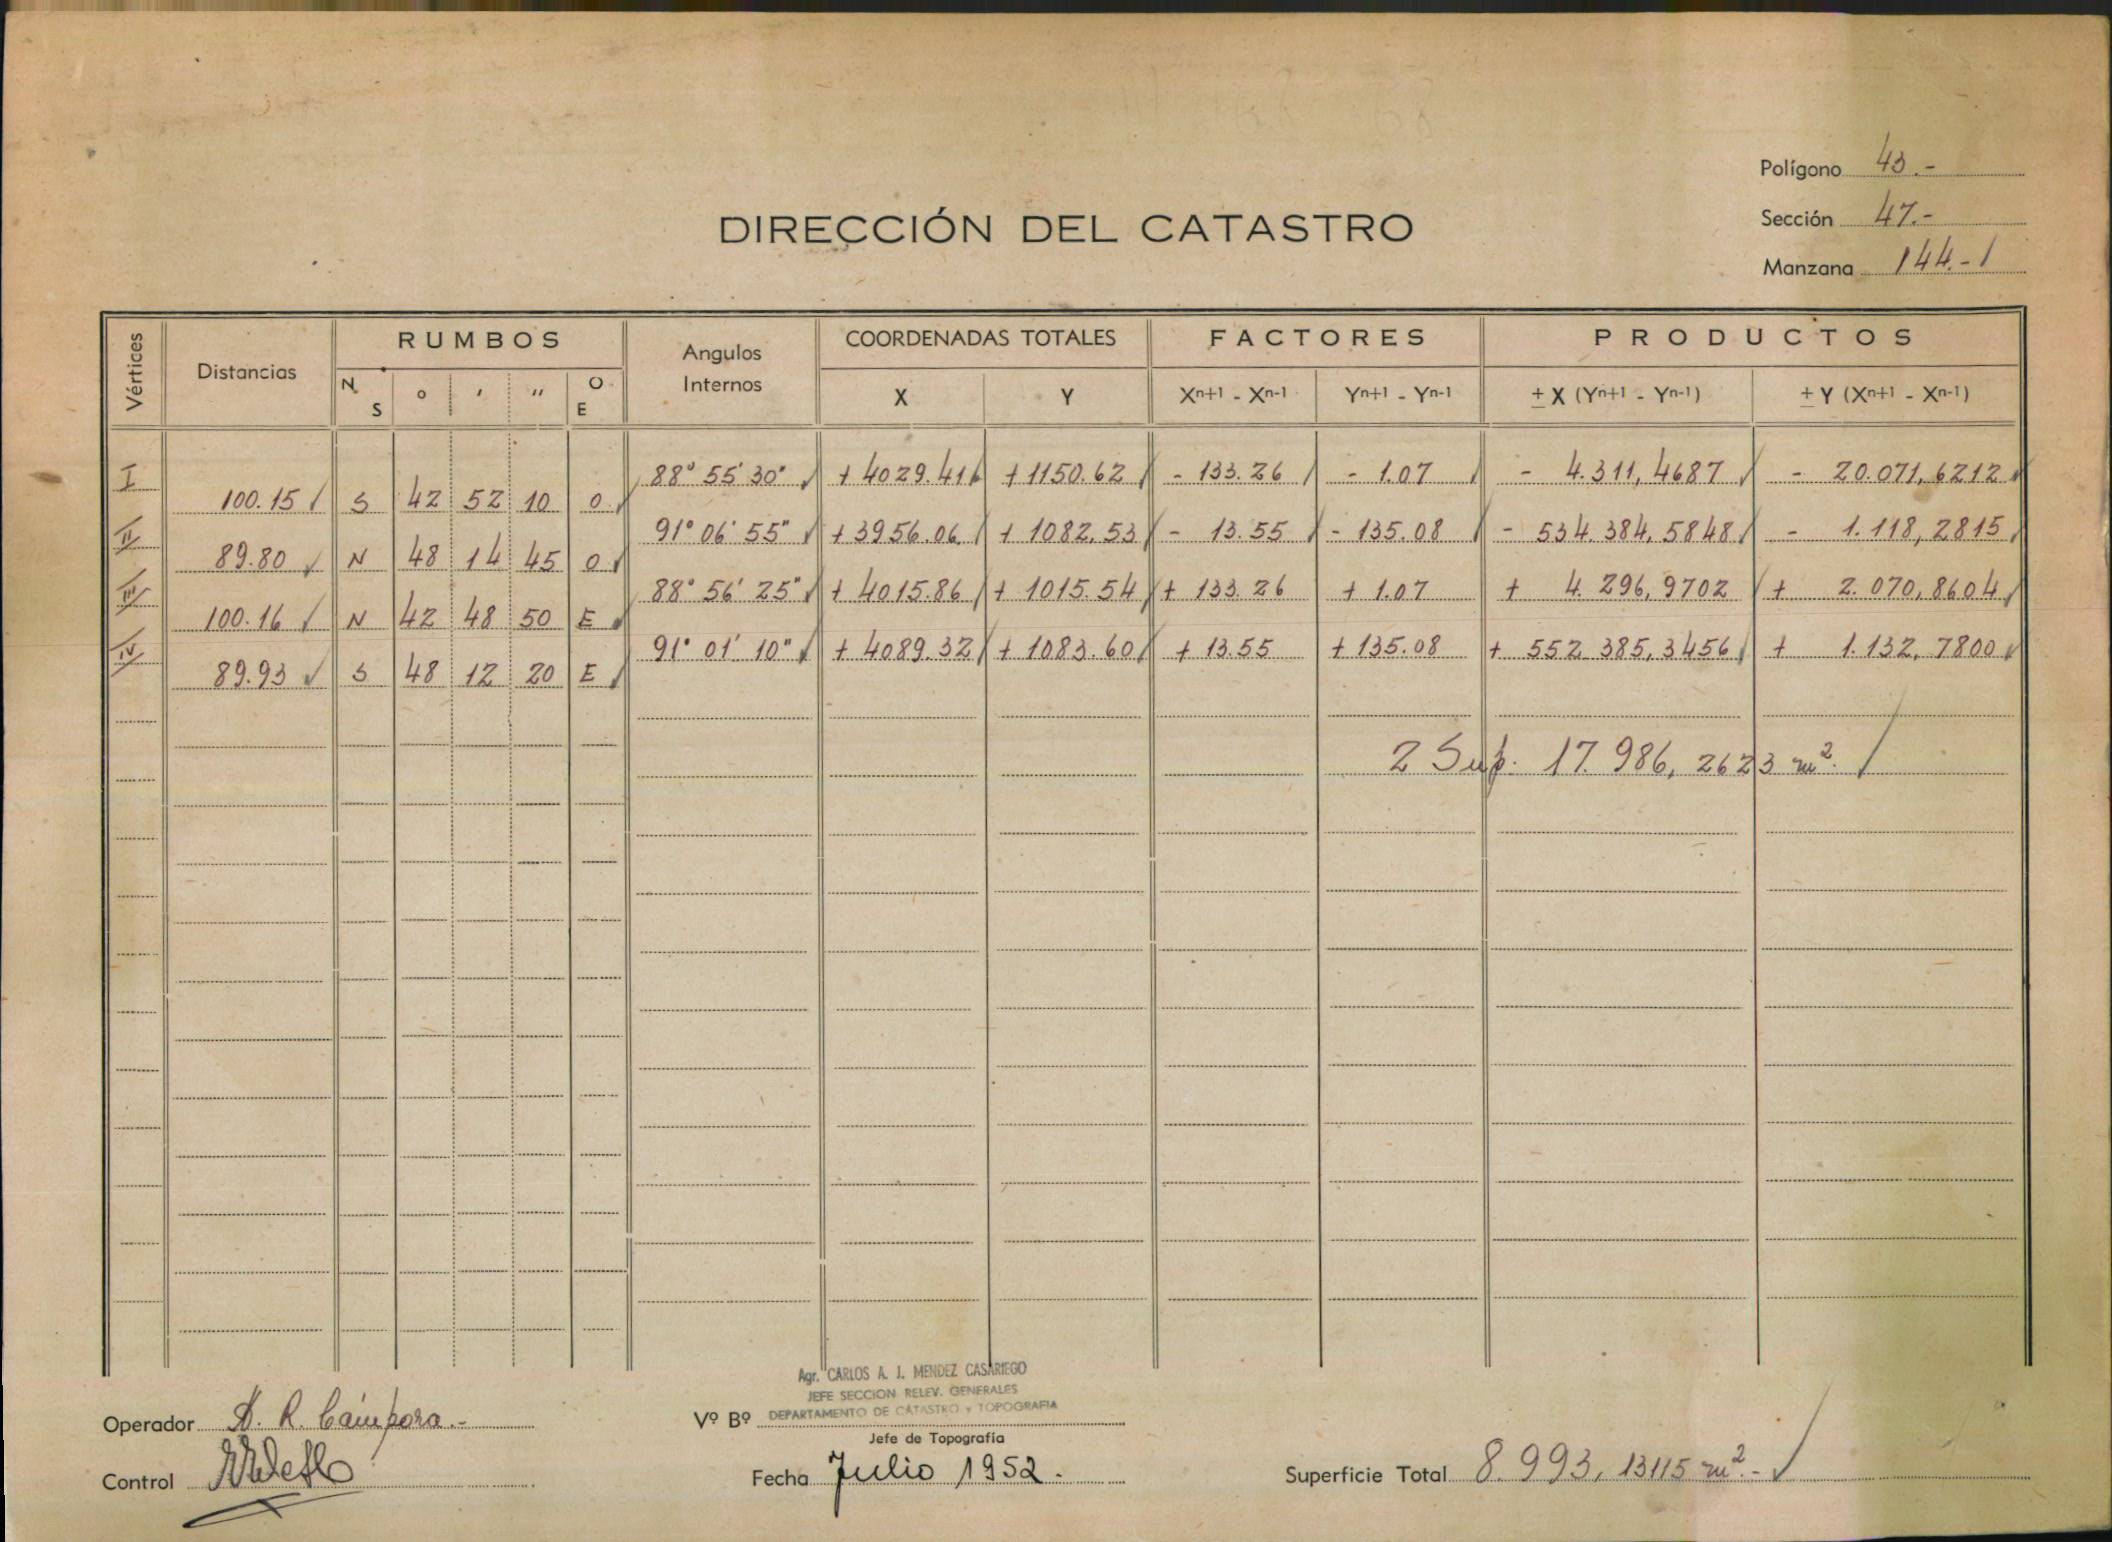 Polígono 43.-
DIRECCIÓN DEL CATASTRO
Sección 47.-
Manzana 144.-
Vértices Distancias RUMBOS Angulos Internos COORDENADAS TOTALES FACTORES PRODUCTOS
N S ° ' " O E X Y Xn+1 - Xn-1 Yn+1 - Yn-1 ± X (Yn+1 - Yn-1) ± Y (Xn+1 - Xn-1)
I 88° 55' 30" + 4029.41 + 1150.62 - 133.26 - 1.07 - 4.311,4687 - 20.071,6212
100.15 S 42 52 10 O
II 91° 06' 55" + 3956.06 + 1082.53 - 13.55 - 135.08 - 534.384,5848 - 1.118,2815
89.80 N 48 14 45 O
III 88° 56' 25" + 4015.86 + 1015.54 + 133.26 + 1.07 + 4.296,9702 + 2.070,8604
100.16 N 42 48 50 E
IV 91° 01' 10" + 4089.32 + 1083.60 + 13.55 + 135.08 + 552.385,3456 + 1.132,7800
89.93 S 48 12 20 E
2 Sup. 17.986,2623 m².
Agr. CARLOS A. J. MENDEZ CASARIEGO
JEFE SECCION RELEV. GENERALES
DEPARTAMENTO DE CATASTRO y TOPOGRAFIA
Operador A. R. Cámpora.-
Vº Bº
Jefe de Topografía
Control
Fecha Julio 1952.
Superficie Total 8.993,13115 m².-